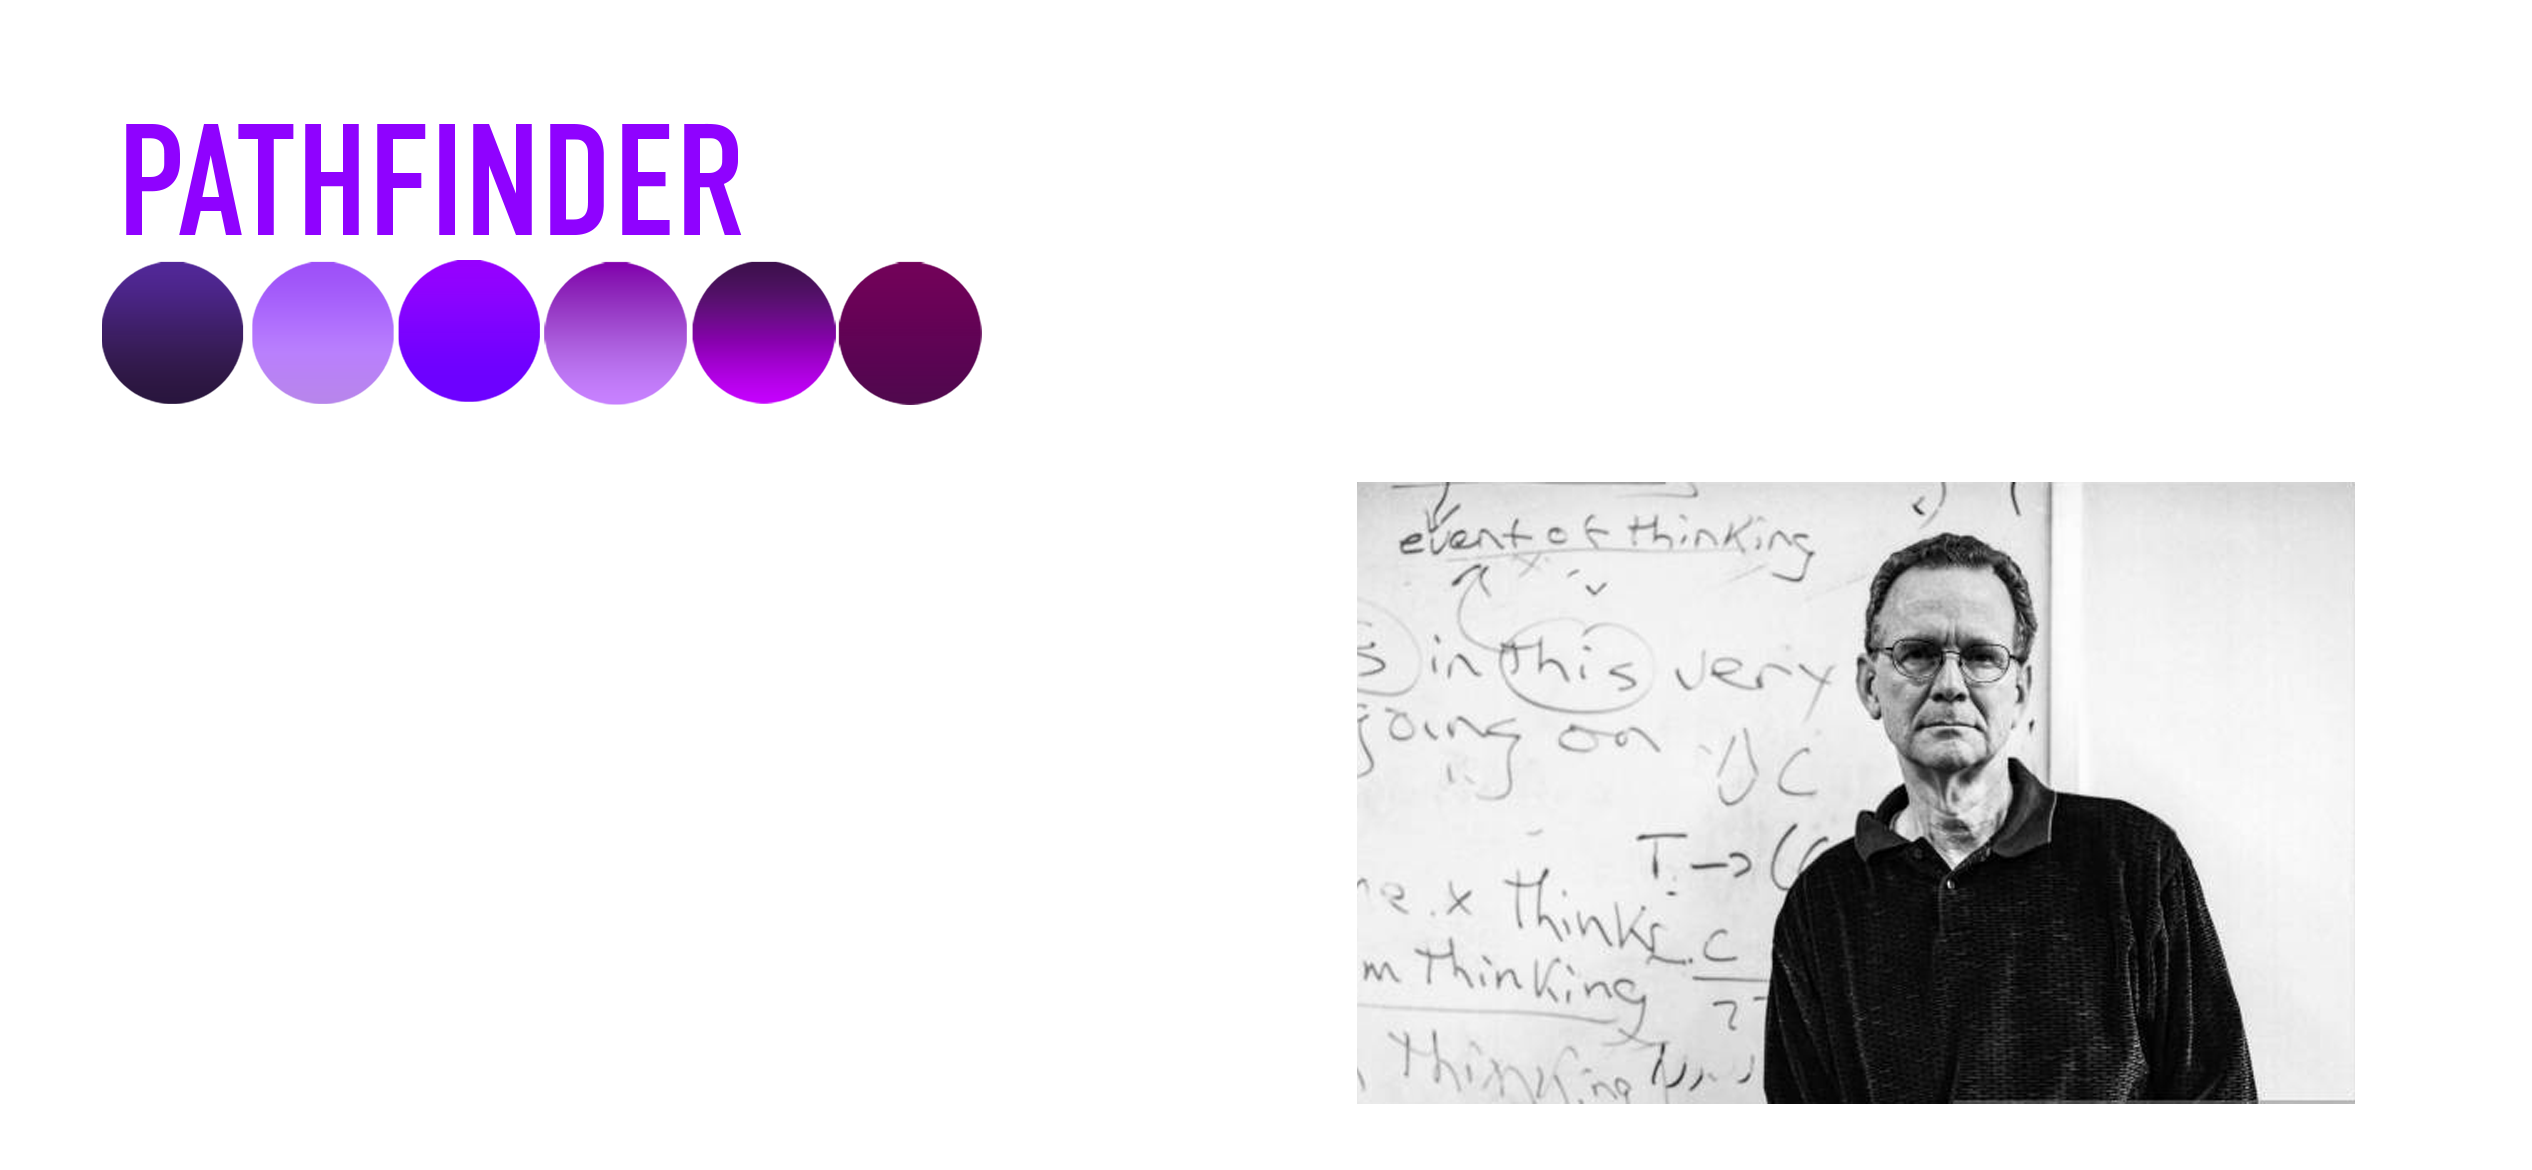 PATHFINDER
event of thinking
in this very
going on
T → (
x thinks. C
m thinking
thinking